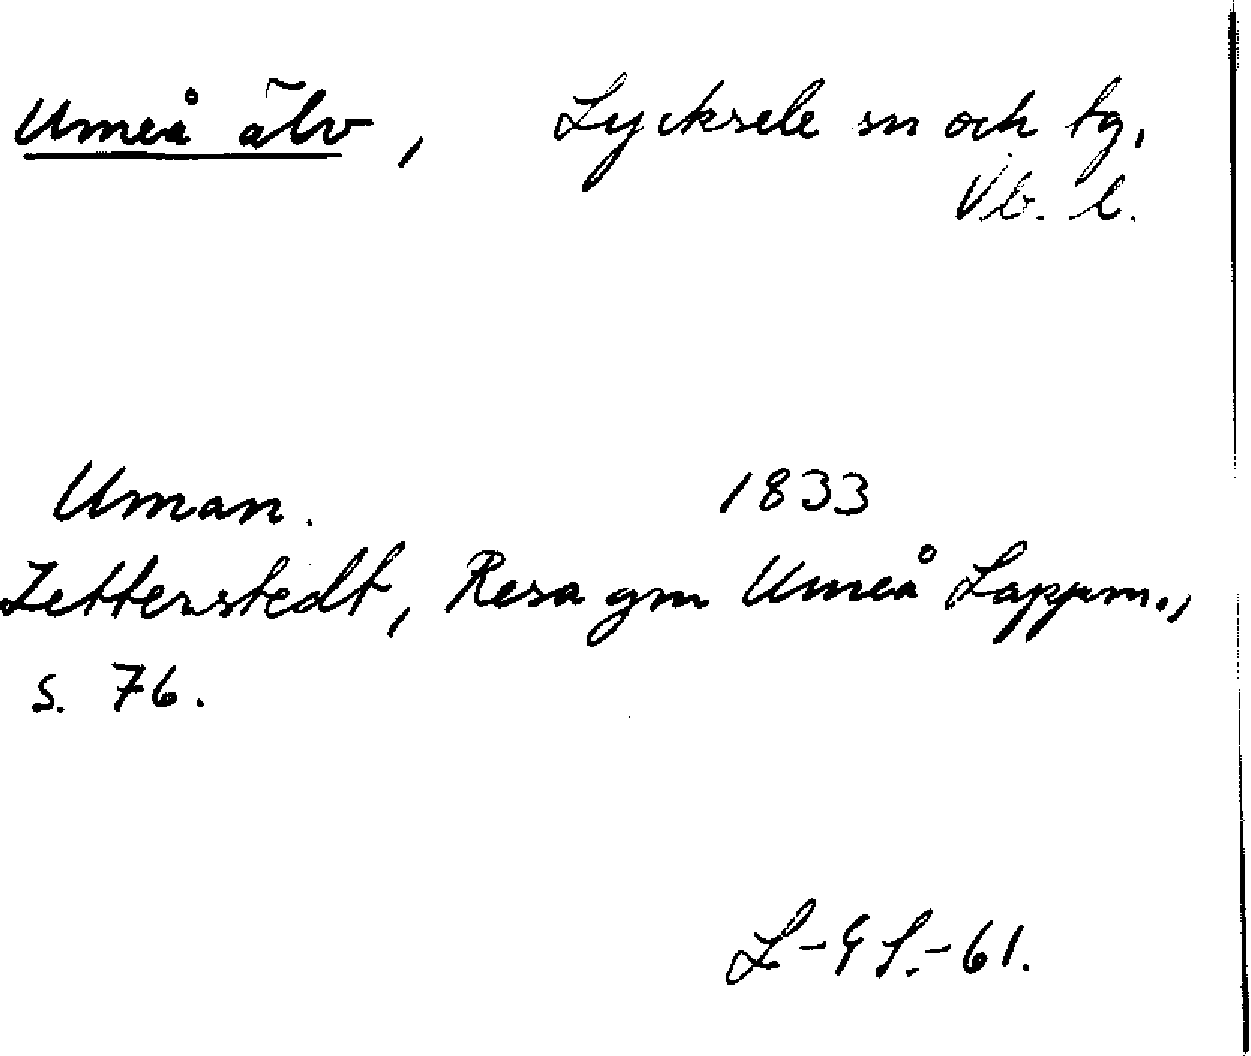 Umeå älv, Lycksele sn och tg.
Vb. l.
Uman. 1833
Zetterstedt, Resa gm Umeå Lappm.,
s. 76.
L-G L.-61.